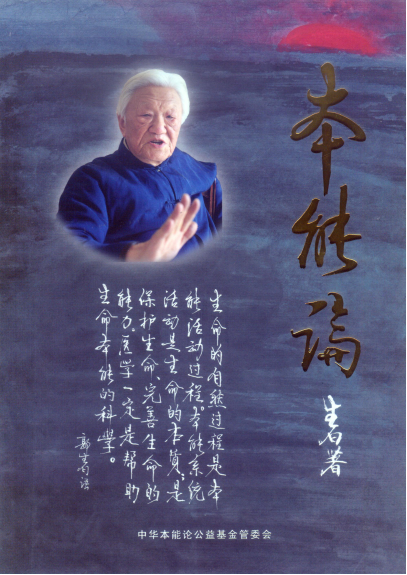 本能論
生甡著
生命的自然过程是本
能活动过程。本能系统
活动是生命的本质，是
保护生命、完善生命的
能力。医学一定是帮助
生命本能的科学。
郭生白语
中华本能论公益基金管委会